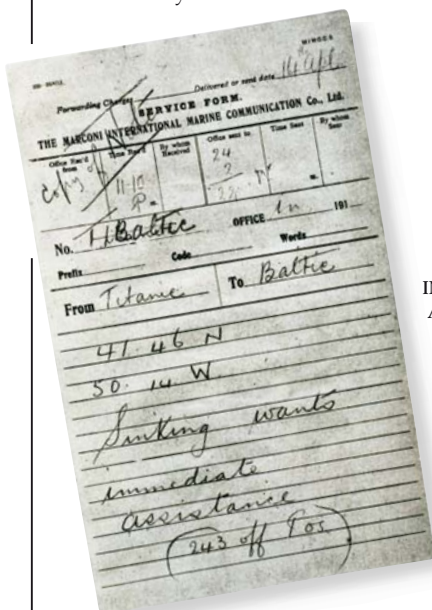 MINCEA
Forwarding Charges
Delivered or send date 14 Apl
SERVICE FORM.
THE MARCONI INTERNATIONAL MARINE COMMUNICATION Co., Ltd.
Office Rec'd from
Time Rec'd
By whom Received
Office sent to
Time Sent
By whom Sent
Copy of
11-10
P
24
2
22
No. Baltic OFFICE 191
Prefix Code Words
From Titanic To Baltic
41. 46 N
50. 14 W
Sinking wants
immediate
assistance
(243 off Pos)